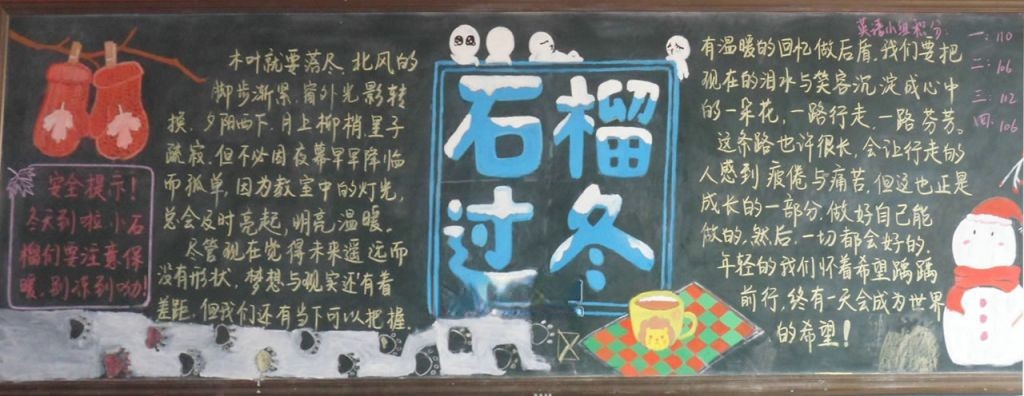 木叶就要落尽,北风的
脚步渐紧,窗外光影转
换,夕阳西下,月上柳梢,星子
疏寂,但不必因夜幕早早降临
而孤单,因为教室中的灯光,
总会及时亮起,明亮,温暖。
尽管现在觉得未来遥远而
没有形状,梦想与现实还有着
差距,但我们还有当下可以把握.
安全提示!
冬天到啦,小石
榴们要注意保
暖,别冻到呦!
石榴
过冬
有温暖的回忆做后盾,我们要把
现在的泪水与笑容沉淀成心中
的一朵花,一路行走,一路芬芳。
这条路也许很长,会让行走的
人感到疲倦与痛苦,但这也正是
成长的一部分.做好自己能
做的,然后,一切都会好的.
年轻的我们怀着希望踽踽
前行,终有一天会成为世界
的希望!
英语小组积分:
一:110
二:106
三:112
四:106